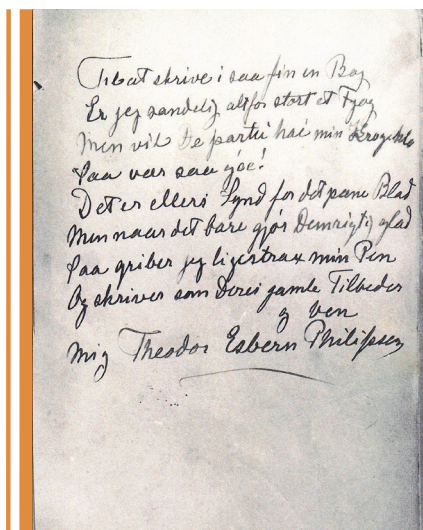 Til at skrive i saa fin en Bog
Er jeg sandelig altfor stort et Fjog
Men vil De partu ha' min
Saa vær saa goe!
Det er ellers Synd for det pæne Blad
Men naar det bare gjør Dem rigtig glad
Saa griber jeg ligestrax min Pen
Og skriver som Deres gamle Tilbeder
og Ven
Mig Theodor Esbern Philipsen